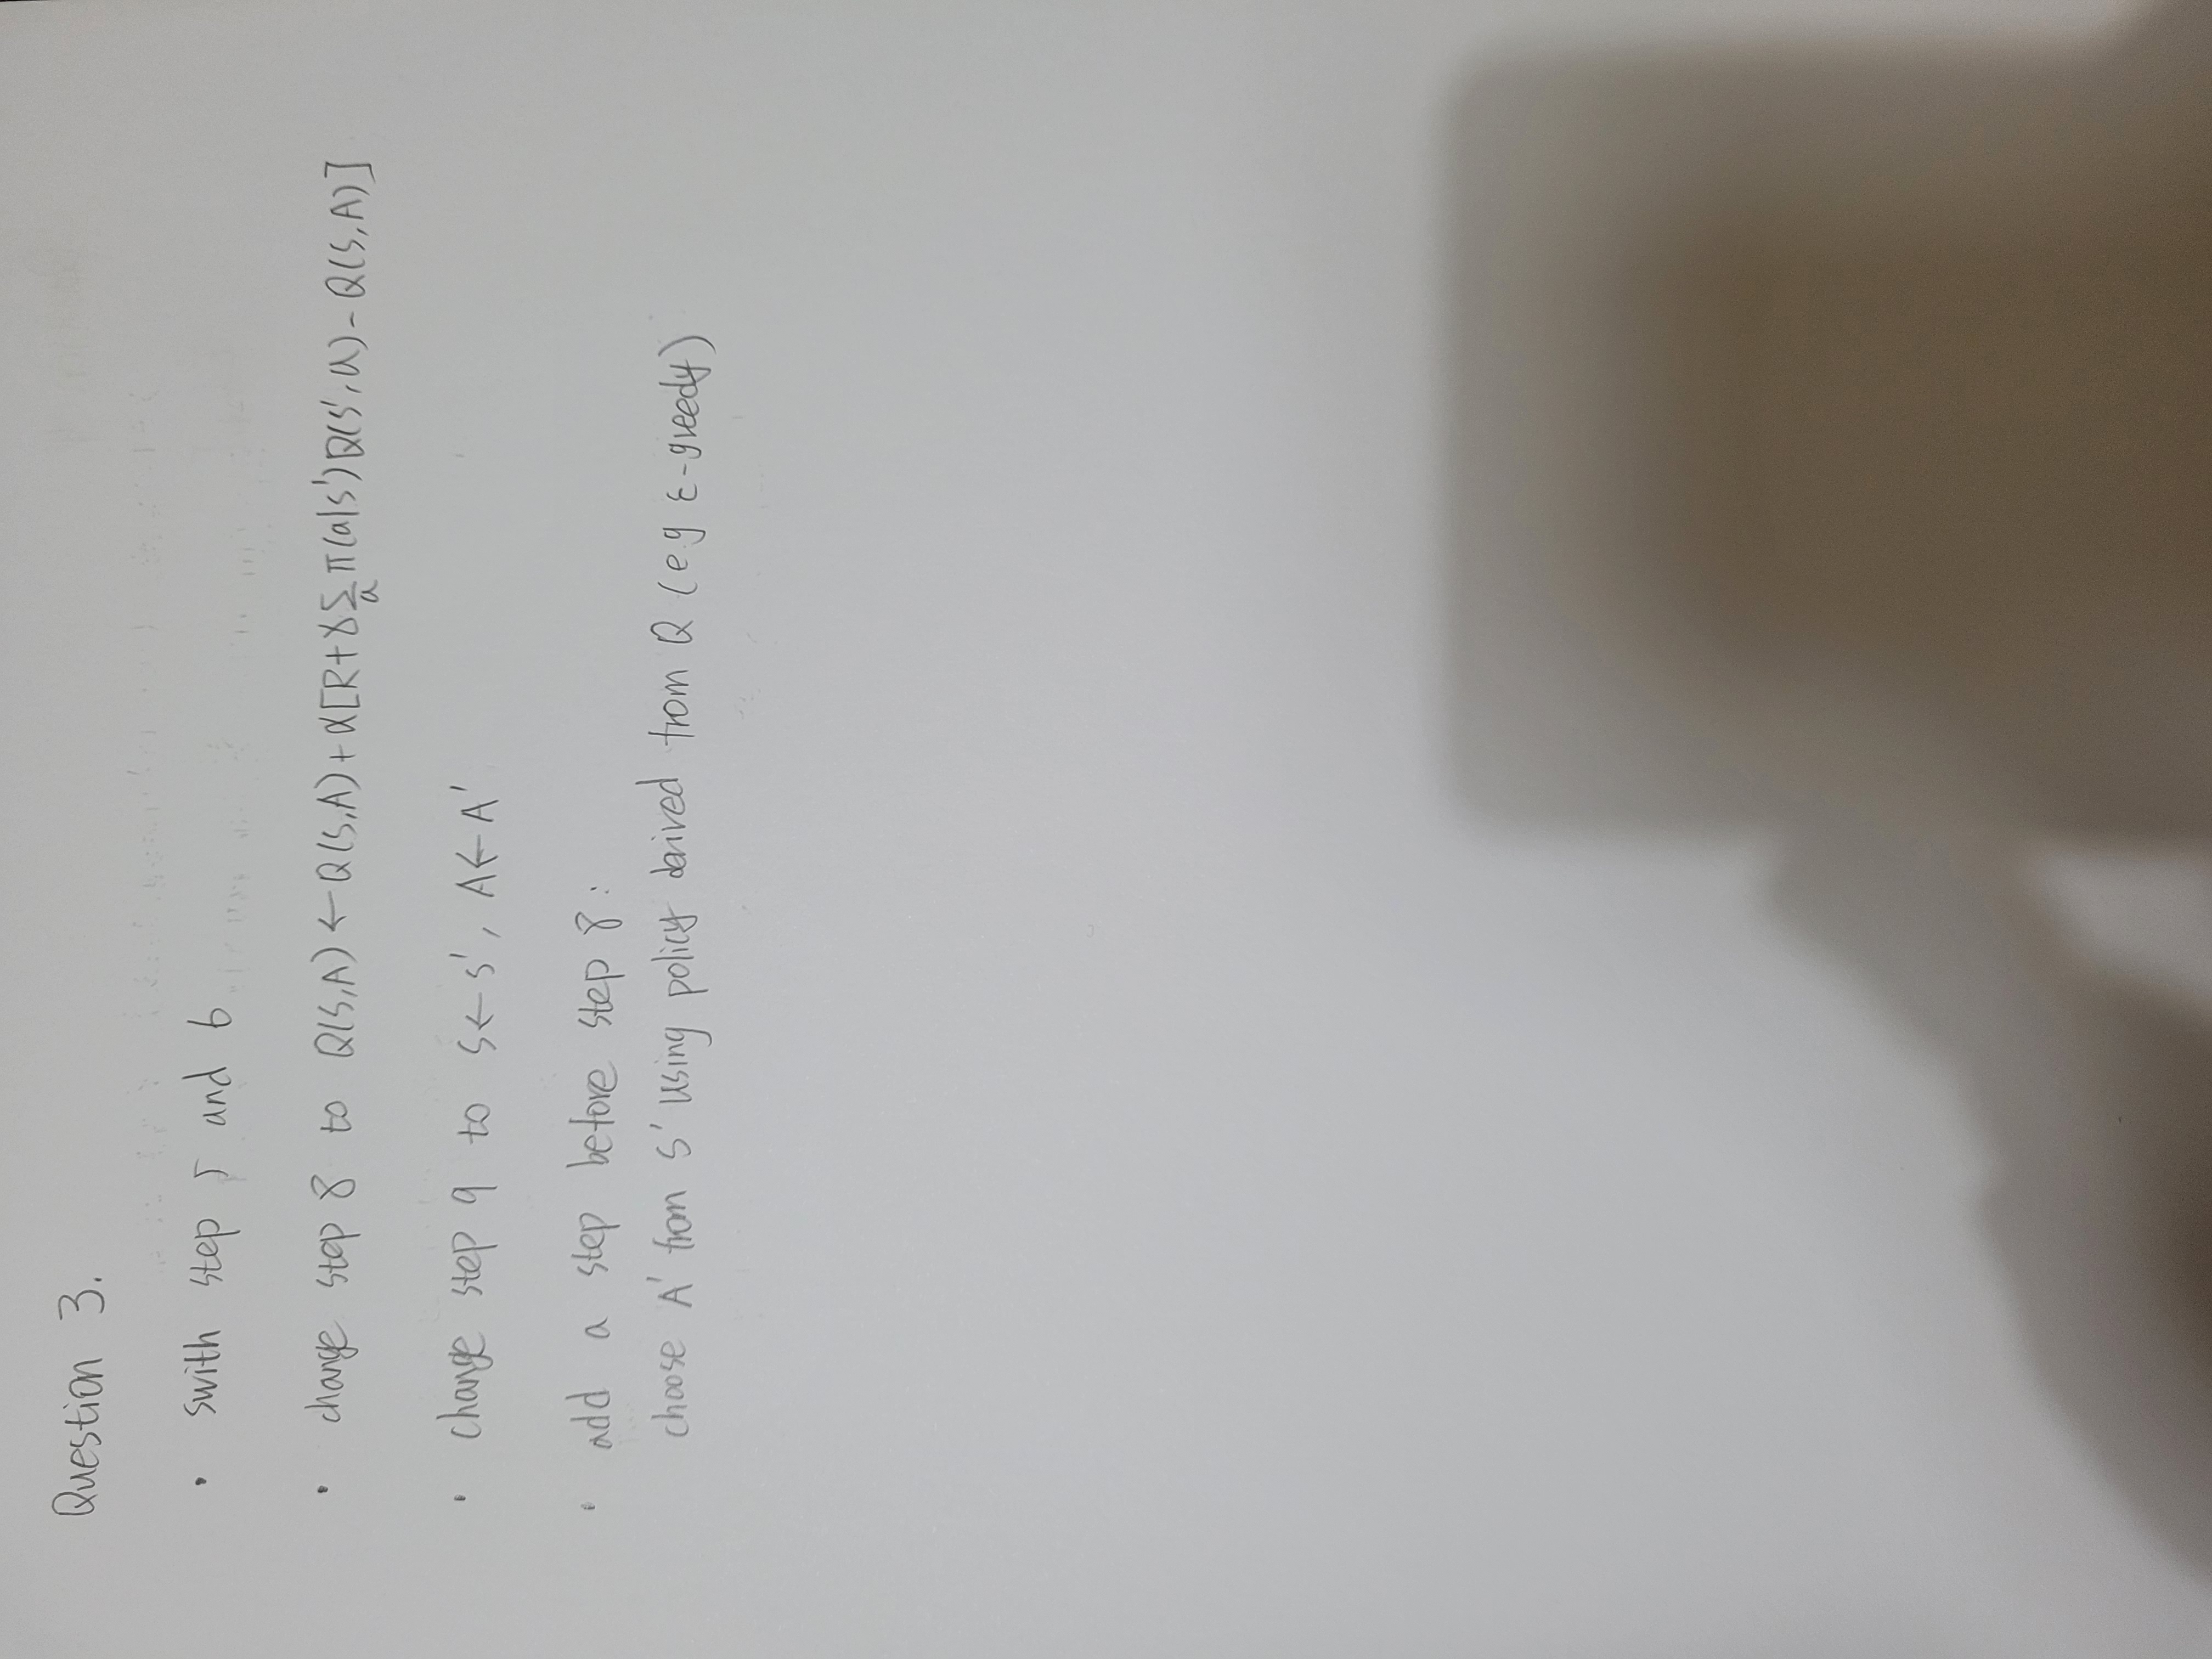 Question 3.
• swith step 5 and 6
• change step 8 to Q(S,A) ← Q(S,A) + α[R+γ∑π(a|s')Q(s',a) - Q(S,A)]
a
• change step 9 to S←S', A←A'
• add a step before step 8:
choose A' from S' using policy derived from Q (eg ε-greedy)